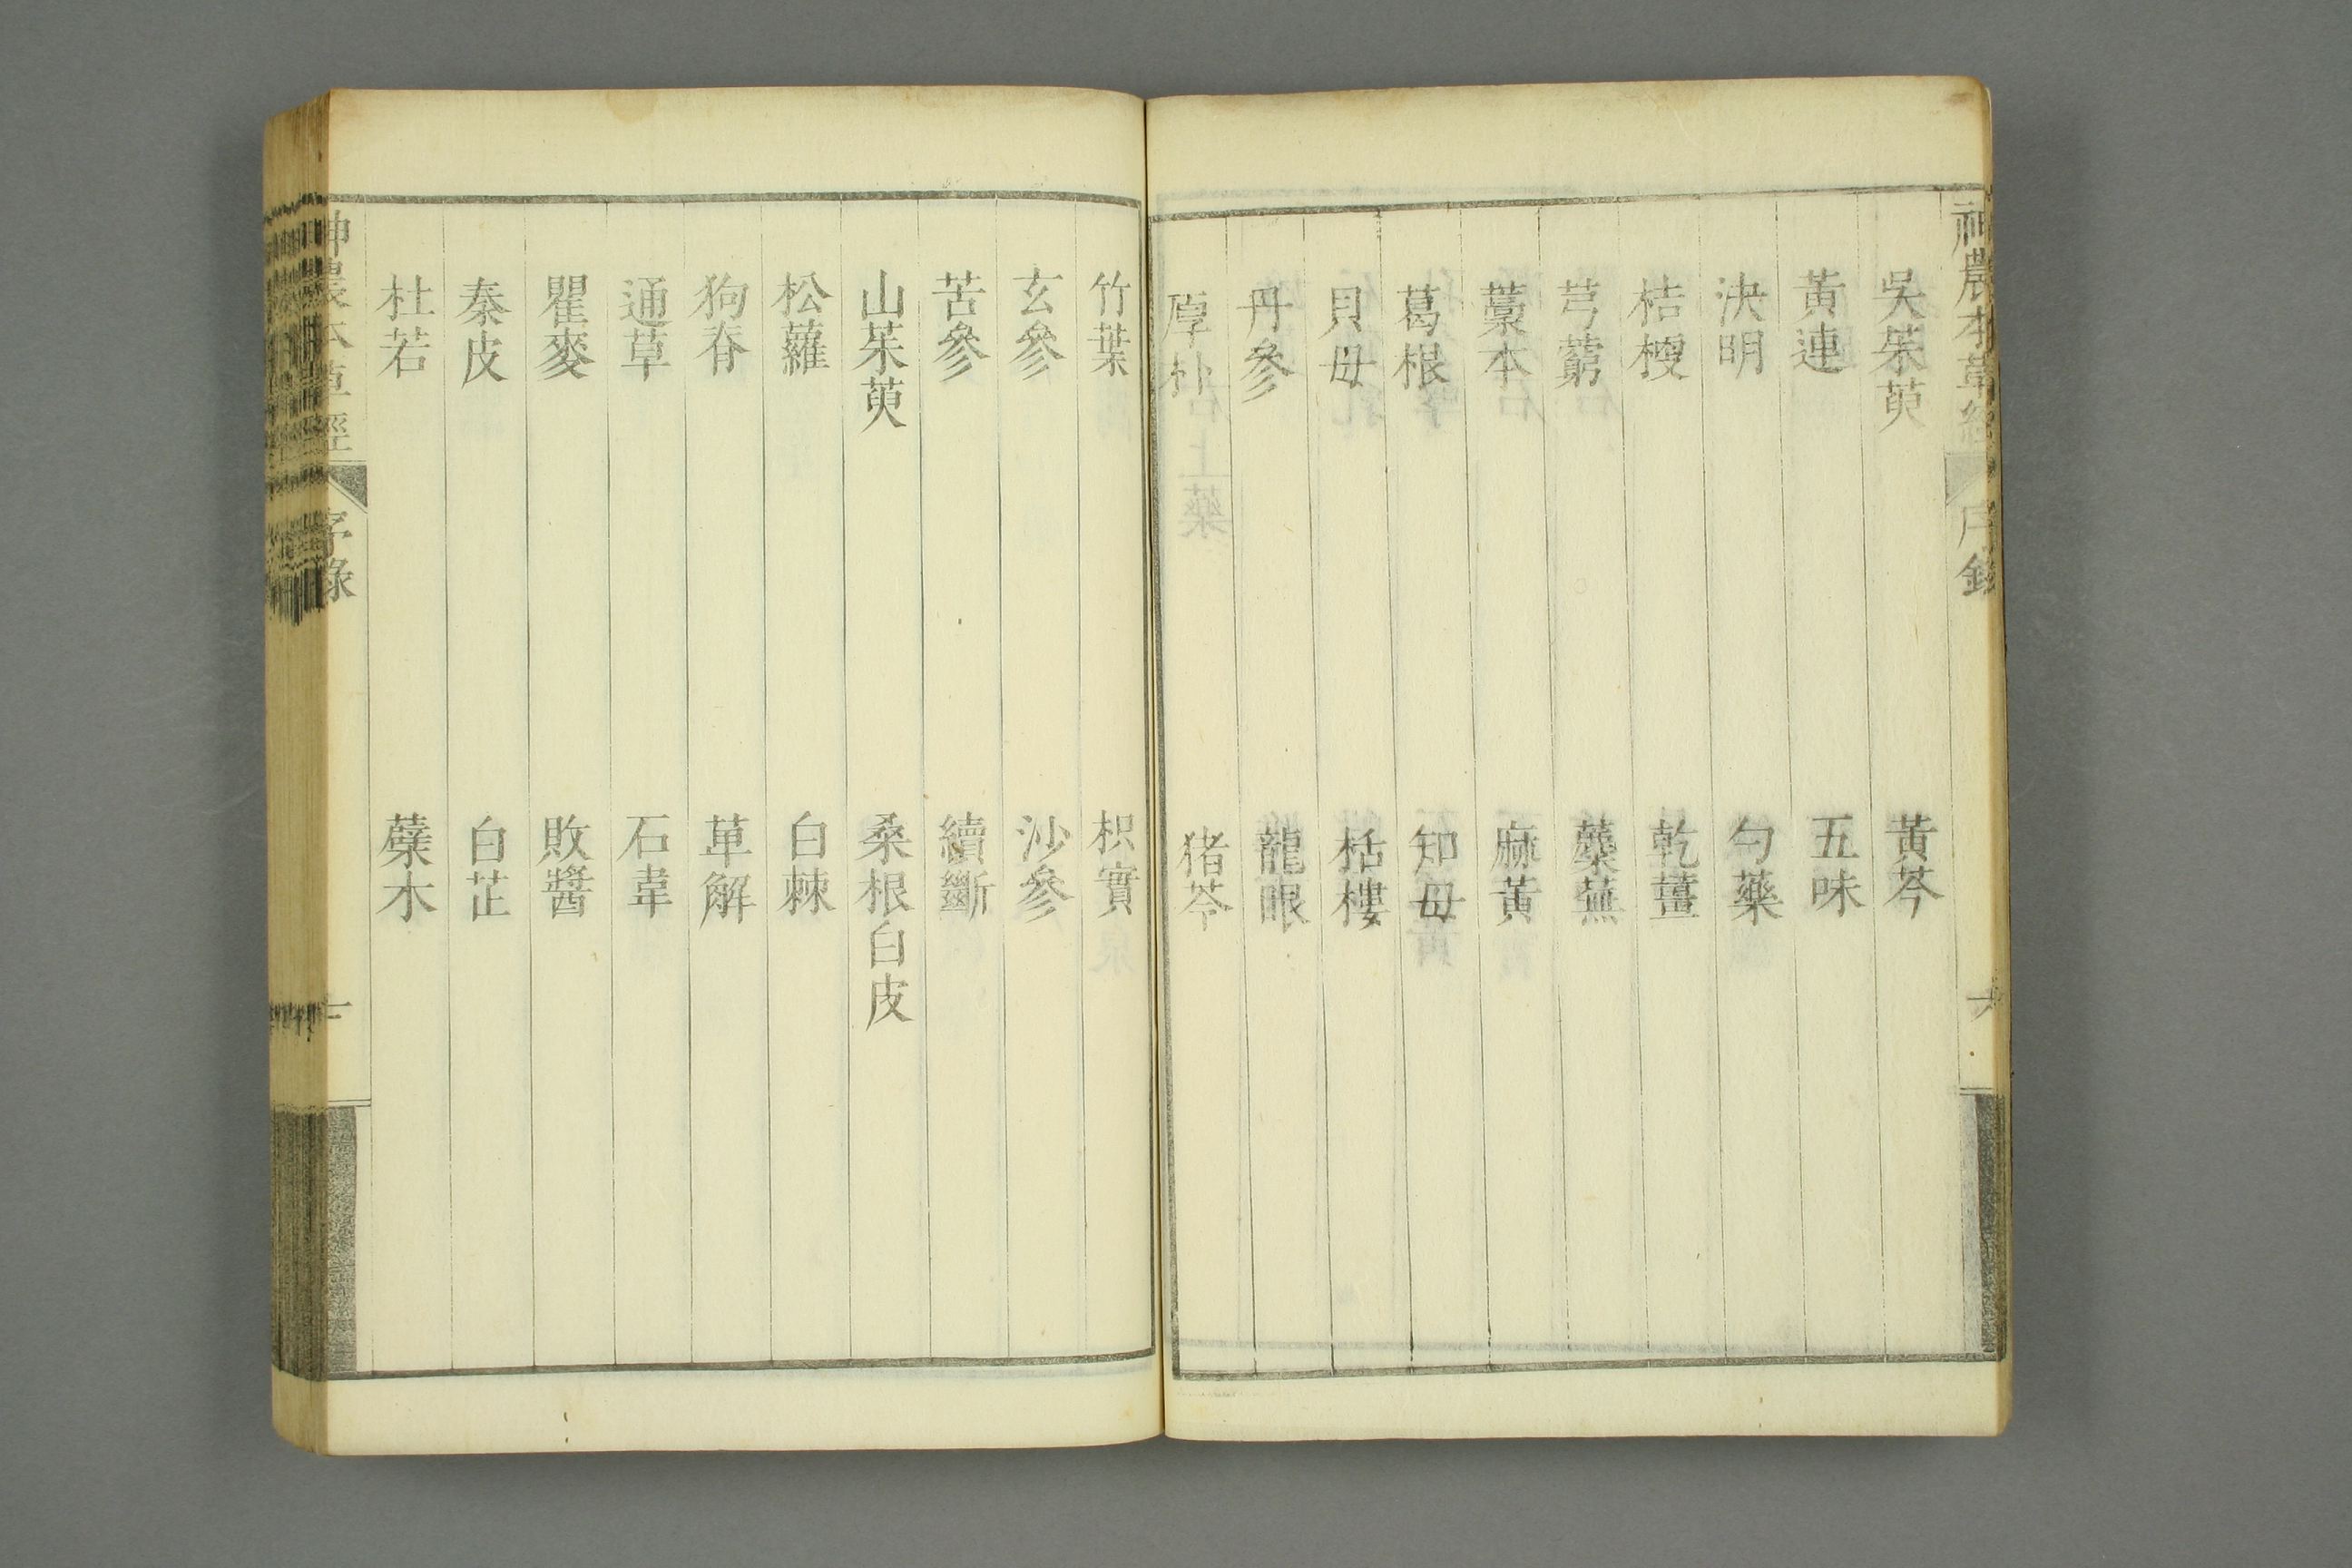 神農本草經 序錄 六
吳茱萸 黃芩
黃連 五味
決明 勺藥
桔梗 乾薑
芎藭 蘪蕪
藁本 麻黃
葛根 知母
貝母 栝樓
丹參 龍眼
厚朴 猪苓
竹葉 枳實
玄參 沙參
苦參 續斷
山茱萸 桑根白皮
松蘿 白棘
狗脊 萆解
通草 石韋
瞿麥 敗醬
秦皮 白芷
杜若 蘗木
神農本草經 序錄